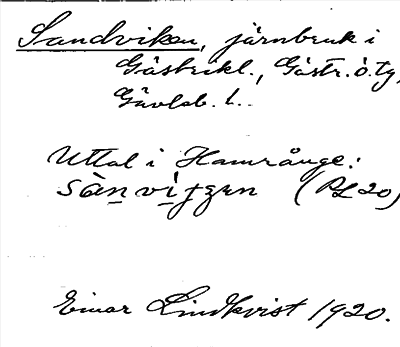 Sandviken, järnbruk i
Gästrikl., Gästr. ö. tg,
Gävleb. l.
Uttal i Hamrånge:
(PL 20)
Einar Lindkvist 1920.